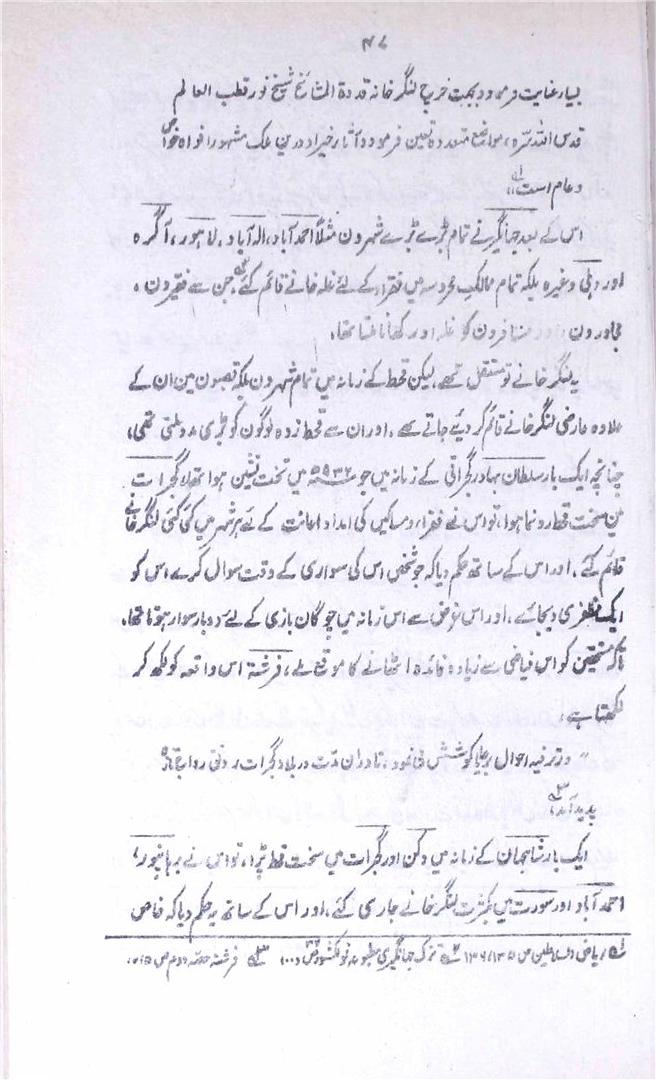 ۴۷
بسیار غایت فرمود و بجہت خرچ لنگر خانہ قدوۃ المشائخ شیخ نور قطب العالم
قدس اللہ سرہ، مواضع متعددہ تعین فرمود و آثار خیر او درین ملک مشہور افواہ خواص
و عام است"
اس کے بعد جہانگیر نے تمام بڑے بڑے شہرون مثلاً احمد آباد، الہ آباد، لاہور، آگرہ
اور دہلی وغیرہ بلکہ تمام ممالک محروسہ میں فقراء کے لئے غلہ خانے قائم کئے جن سے فقیرون،
مجاورون، اور مسافرون کو غلہ اور کھانا ملتا تھا۔
یہ لنگر خانے تو مستقل تھے، لیکن قحط کے زمانہ میں تمام شہرون بلکہ قصبون مین ان کے
علاوہ عارضی لنگر خانے قائم کر دیئے جاتے تھے، اور ان سے قحط زدہ لوگون کو بڑی مدد ملتی تھی،
چنانچہ ایک بار سلطان بہادر گجراتی کے زمانہ میں جو ۹۳۲ھ میں تخت نشین ہوا تھا، گجرات
مین سخت قحط رونما ہوا، تو اس نے فقراء و مساکین کی امداد و اعانت کے لئے ہر شہر میں کئی کئی لنگر خانے
قائم کئے، اور اس کے ساتھ حکم دیا کہ جو شخص اس کی سواری کے وقت سوال کرے اس کو
ایک مظفری دیجائے، اور اس غرض سے اس زمانہ میں چوگان بازی کے لئے دو بار سوار ہوتا تھا،
تاکہ مستحقین کو اس فیاضی سے زیادہ فائدہ اٹھانے کا موقع ملے، فرشتہ اس واقعہ کو لکھ کر
لکھتا ہے،
"و ترفیہ احوال برعایا کوشش می نمود، تا در ان مدت در بلاد گجرات رونقی
پدید آمد"
ایک بار شاہجہان کے زمانہ میں دکن اور گجرات میں سخت قحط پڑا، تو اس نے برہانپور،
احمد آباد اور سورت میں بکثرت لنگر خانے جاری کئے، اور اس کے ساتھ یہ حکم دیا کہ خاص
۱؎ ریاض السلاطین ص ۱۳۵، ۱۳۶ ۲؎ تزک جہانگیری مطبوعہ نولکشور ص ۱۰۰ ۳؎ فرشتہ حصہ دوم ص